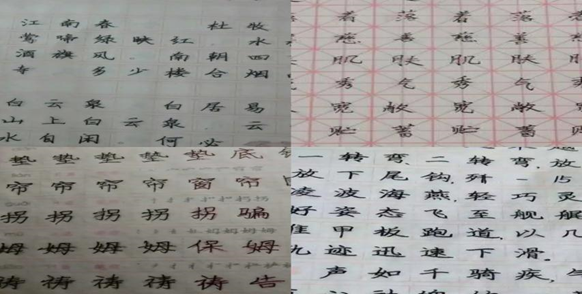 江南春 杜牧
莺啼绿映红 水
酒旗风 南朝四
寺多少楼台烟
白云泉 白居易
山上白云泉 云
水自闲 何必
着落着落
慈善慈善
肌肤肌肤
秀气秀气
宽敞宽敞
贮蓄贮蓄
垫垫垫垫垫底
帘帘帘帘窗帘
拐拐拐拐拐骗
姆姆姆姆保姆
祷祷祷祷祷告
一转弯,二转弯,放
放下尾钩,歼-15
凌波海燕,轻巧灵
好姿态飞至舰舰
佳甲板跑道,以几
九迹迅速下滑.
声如千骑疾,